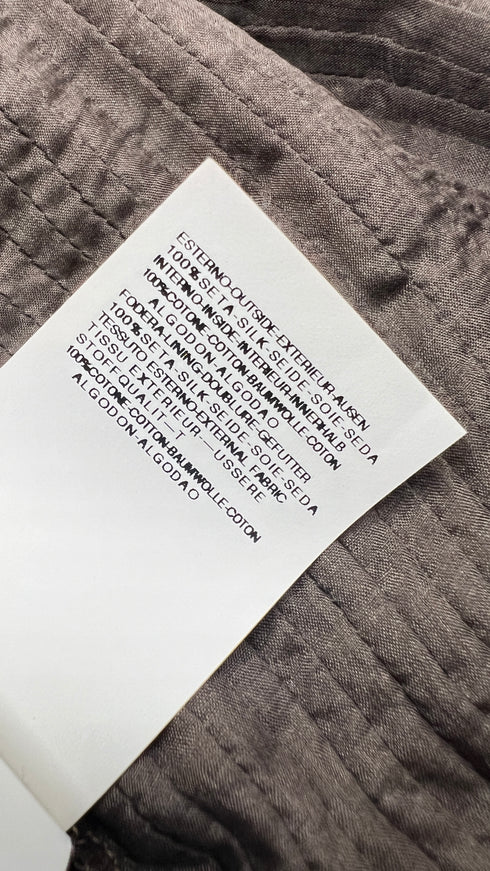 ESTERNO-OUTSIDE-EXTERIEUR-AUSEN
100%SETA-SILK-SEIDE-SOIE-SEDA
INTERNO-INSIDE-INTERIEUR-INNERHALB
100%COTONE-COTTON-BAUMWOLLE-COTON
ALGODON-ALGODAO
FODERA-LINING-DOUBLURE-GEFUTTER
100%SETA-SILK-SEIDE-SOIE-SEDA
TESSUTO ESTERNO-EXTERNAL FABRIC
TISSU EXTERIEUR--USSERE
STOFFQUALIT_T
100%COTONE-COTTON-BAUMWOLLE-COTON
ALGODON-ALGODAO